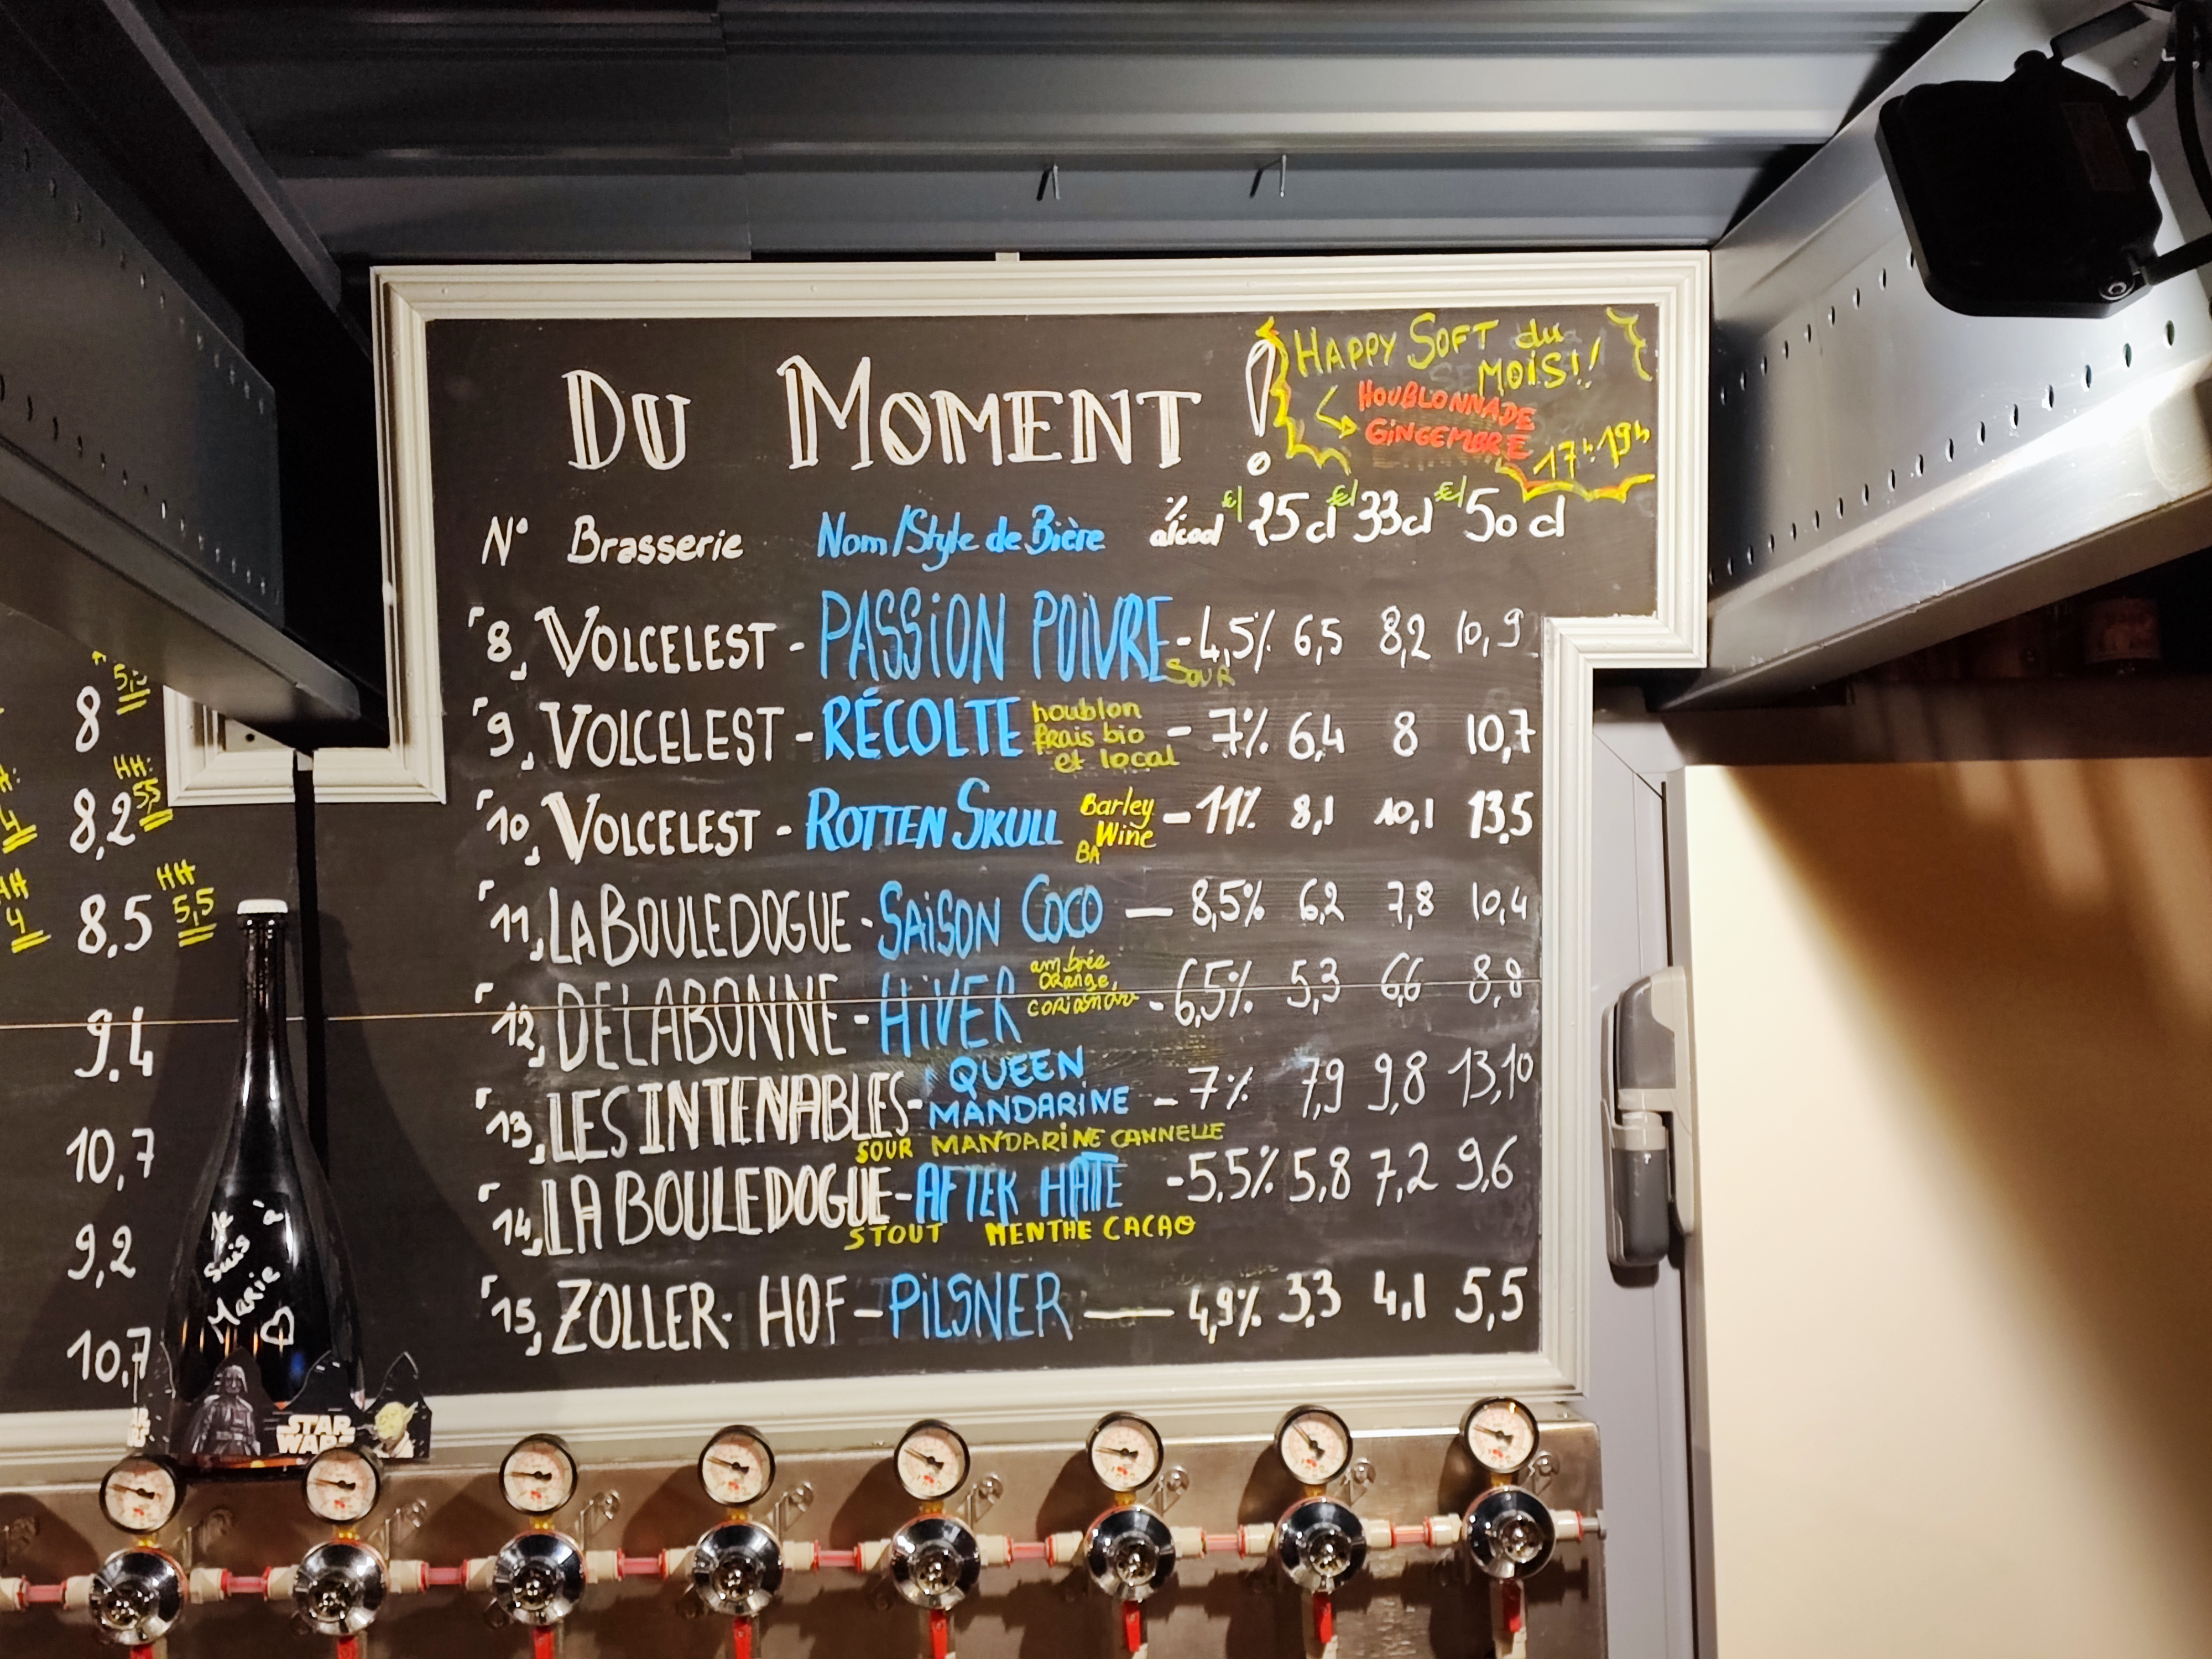 HAPPY SOFT du
MOIS!!
HOUBLONNADE
GINGEMBRE
17h-19h
DU MOMENT !
N° Brasserie Nom/Style de Bière % alcool €/25cl €/33cl €/50cl
8 VOLCELEST - PASSION POIVRE - 4,5% 6,5 8,2 10,9
SOUR
9 VOLCELEST - RÉCOLTE houblon frais bio et local - 7% 6,4 8 10,7
10 VOLCELEST - ROTTEN SKULL Barley Wine BA - 11% 8,1 10,1 13,5
11 LA BOULEDOGUE - SAISON COCO - 8,5% 6,2 7,8 10,4
12 DELABONNE - HIVER ambrée orange, - 6,5% 5,3 6,6 8,8
13 LES INTENABLES - QUEEN MANDARINE - 7% 7,9 9,8 13,10
SOUR MANDARINE CANNELLE
14 LA BOULEDOGUE - AFTER HATE - 5,5% 5,8 7,2 9,6
STOUT MENTHE CACAO
15 ZOLLER-HOF - PILSNER - 4,9% 3,3 4,1 5,5
8 5,5
HH: 4 8,2 HH: 5,5
HH 4 8,5 HH 5,5
9,4
10,7
9,2
10,7
Je suis à Marie
STAR WARS